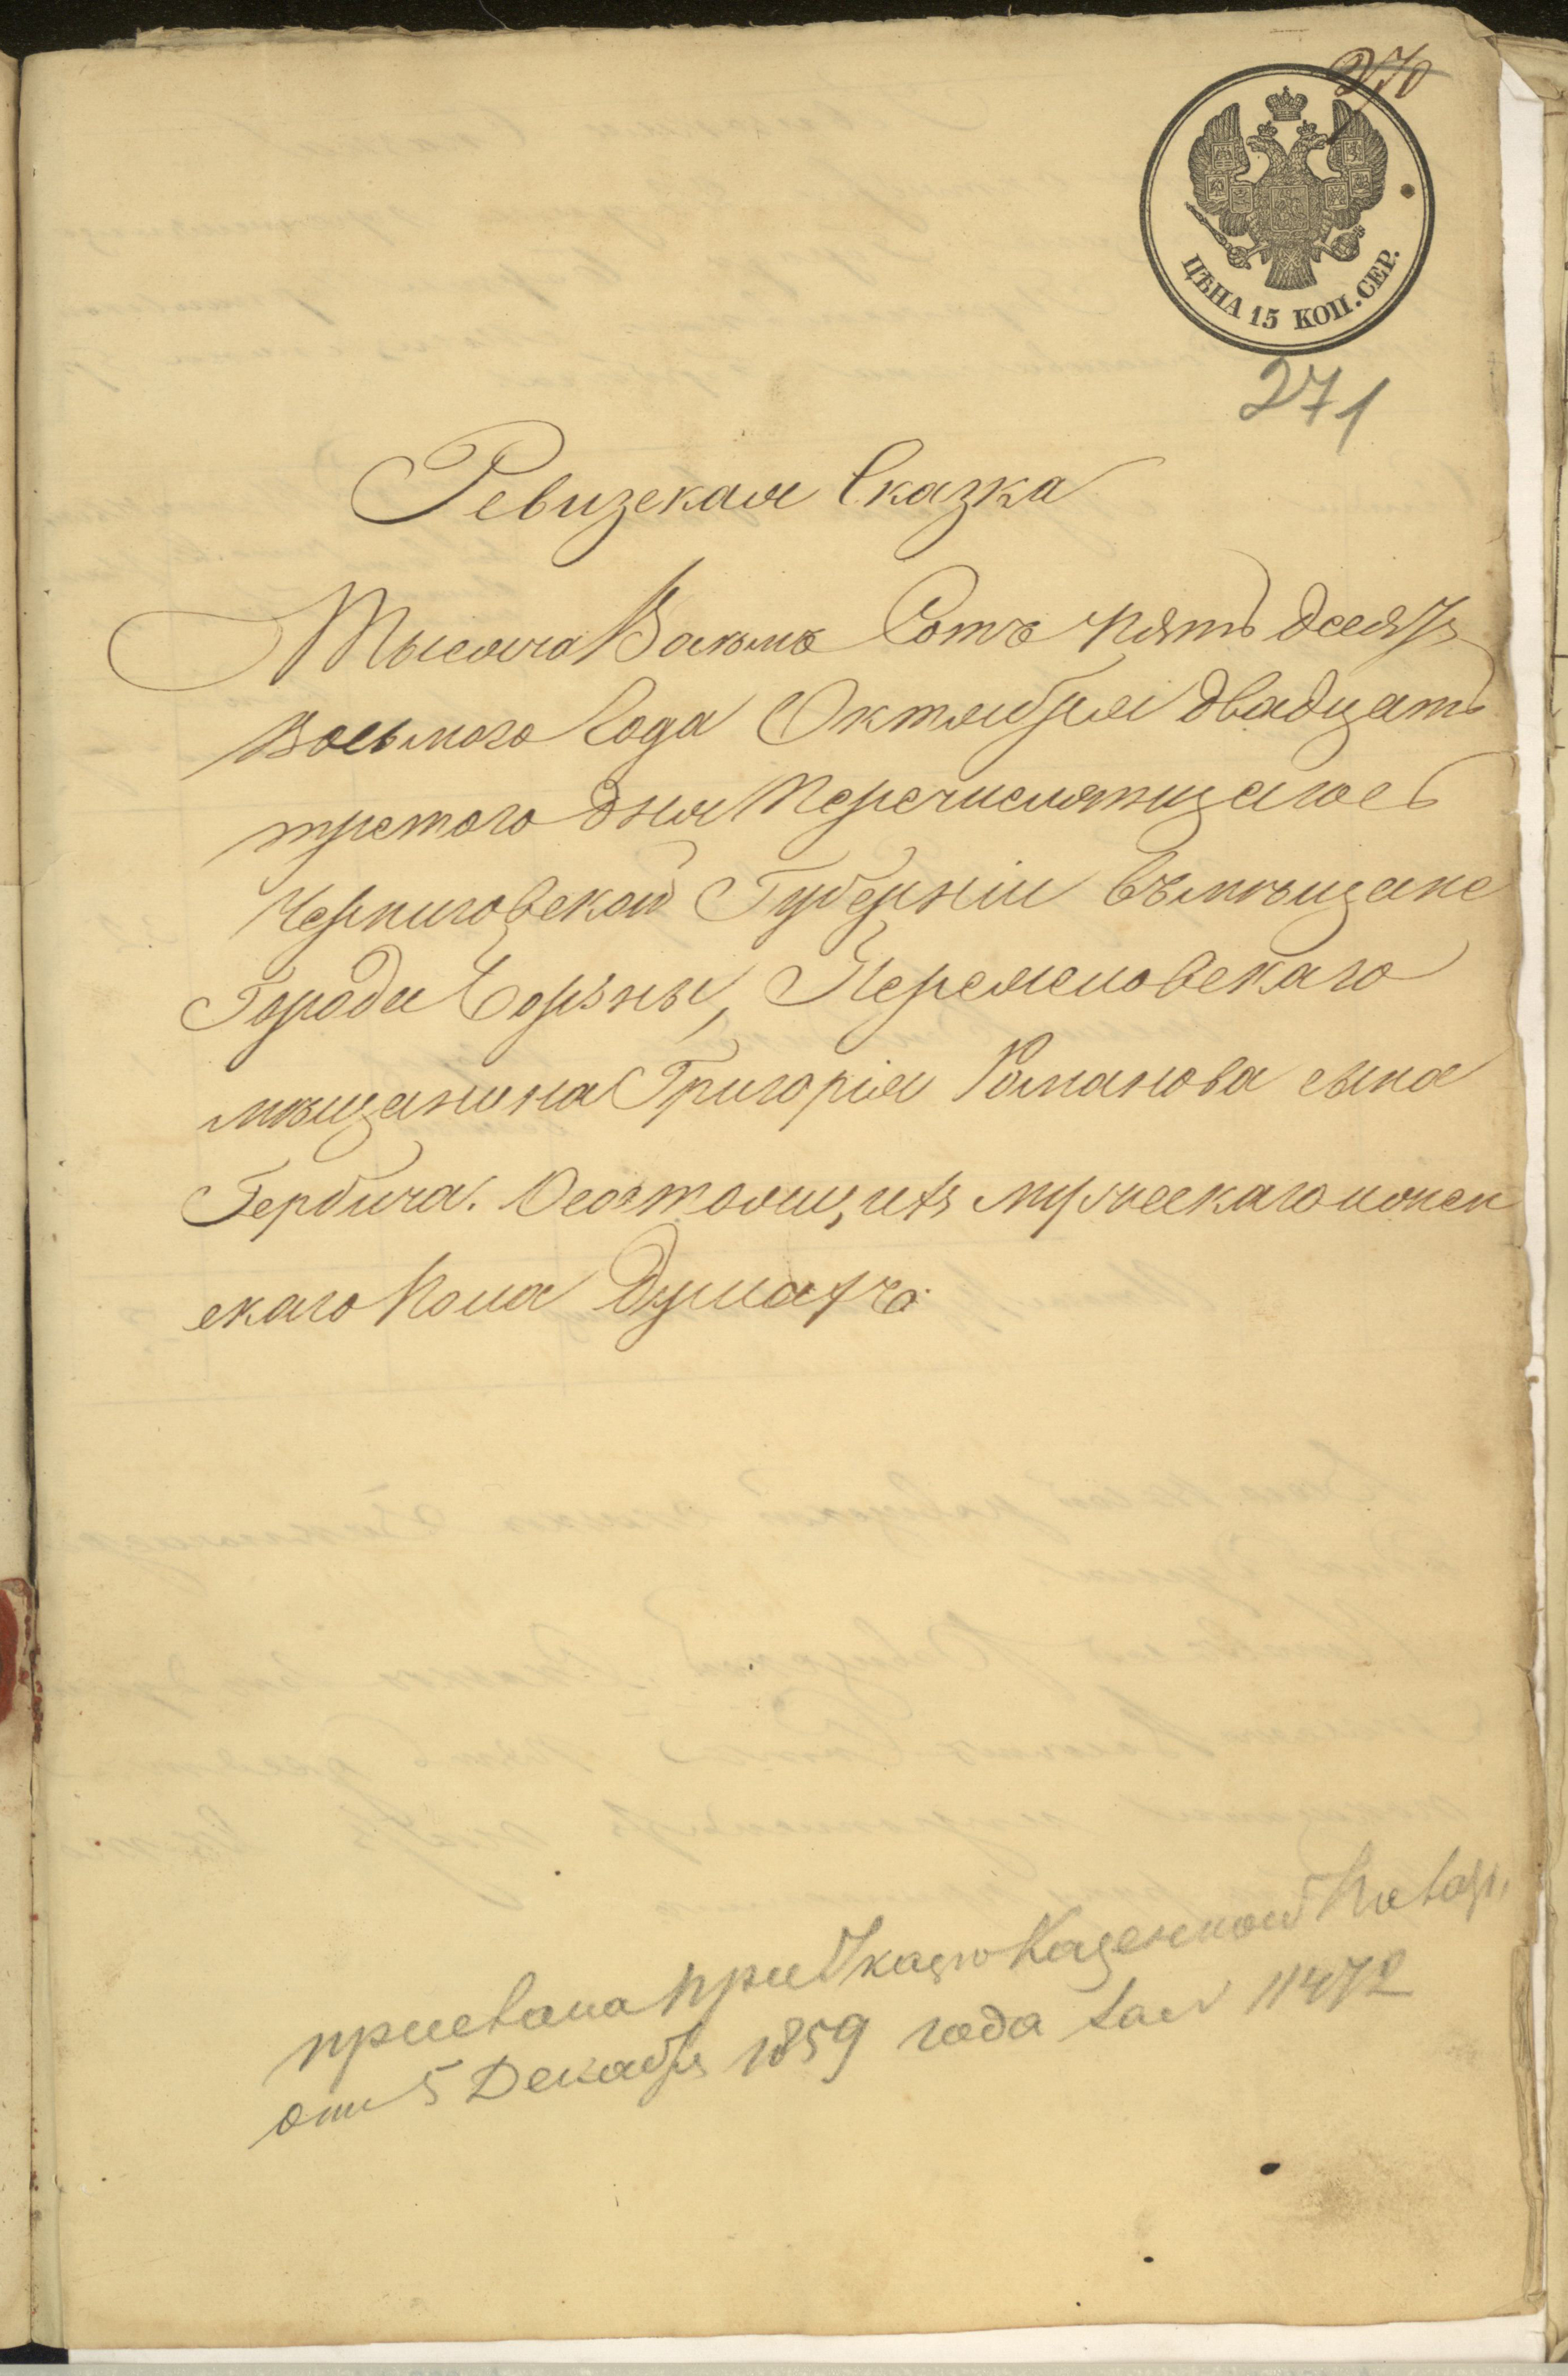 270
ЦѢНА 15 КОП. СЕР.
271
Ревизская Сказка
Тысяча Восемь Сотъ пять десятъ
восьмого Года Октября двадцать
третого дня Перечислятщагось
Черниговской Губерніи въ мѣщане
Города Борзны, Переясловскаго
мѣщанина Григорія Романова сына
Гербича. О состоящихъ мужескаго и женс
скаго пола душахъ.
прислана при Указе Казенной Палаты
от 5 Декабря 1859 года за № 11472